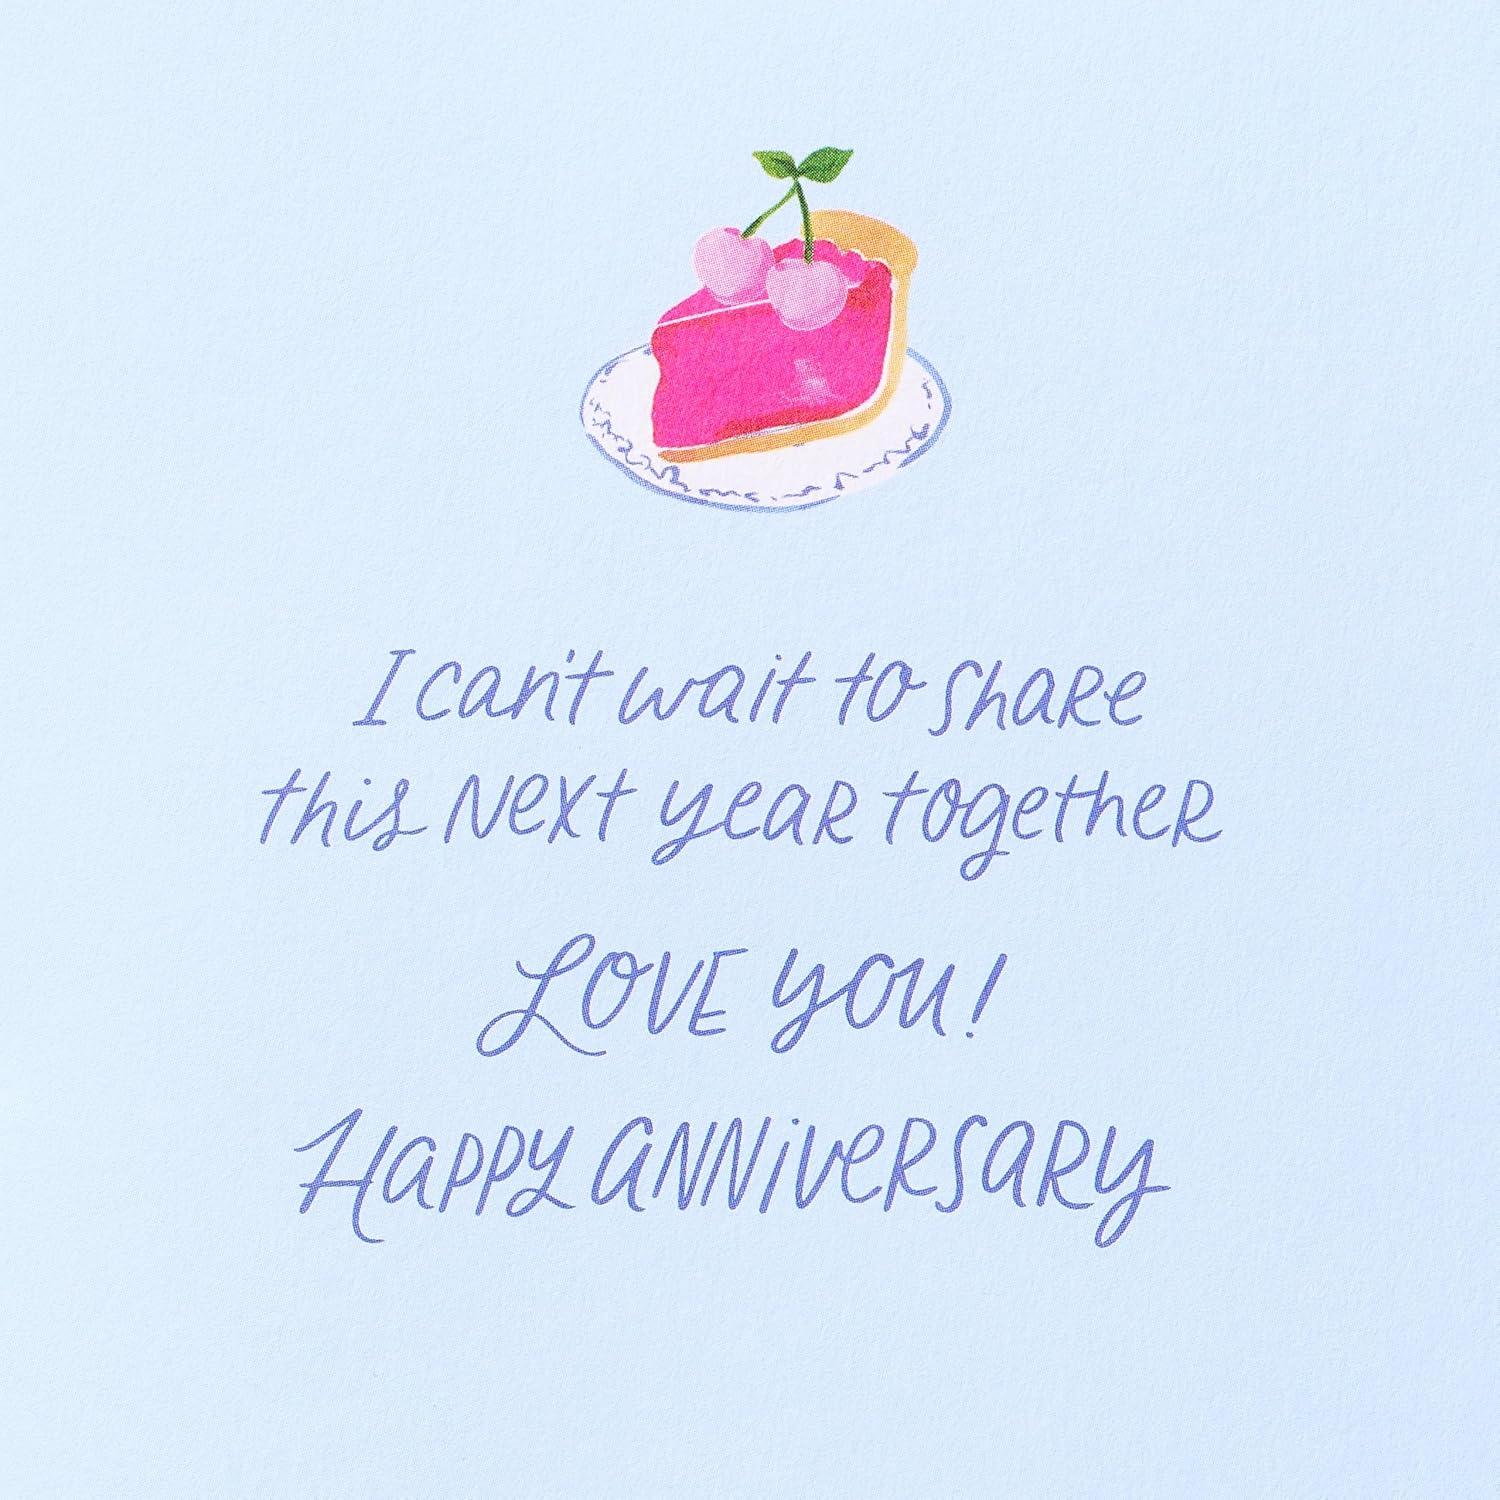 I can't wait to share
this next year together
Love you!
Happy Anniversary